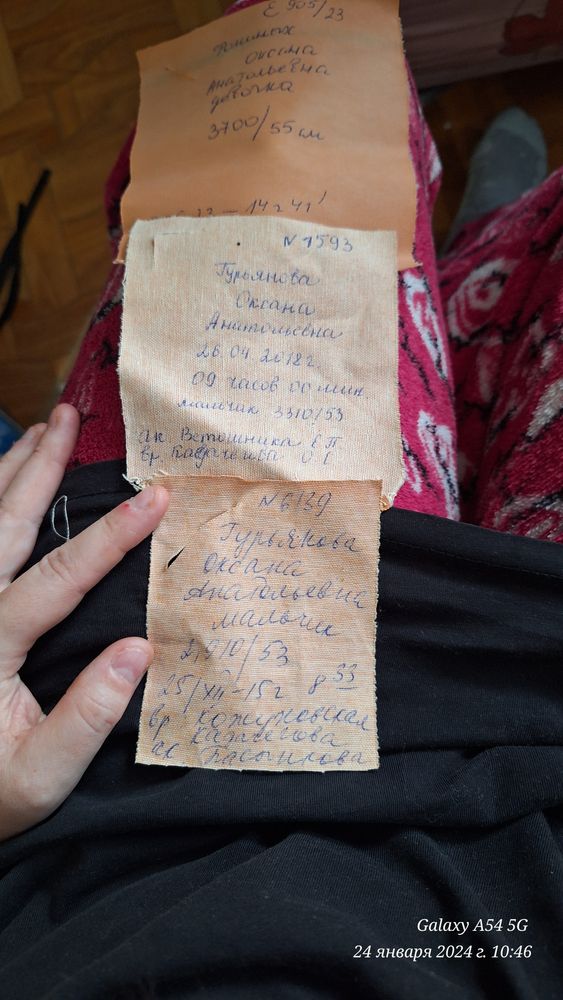 Е 905/23
Оксана
Анатольевна
девочка
3700/55 см
23 – 14 ч 41'
N 1593
Гурьянова
Оксана
Анатольевна
26.04.2018 г.
09 часов 00 мин
мальчик 3310/53
ак Ветошкина Е П
вр О. Е
N 6139
Гурьянова
Оксана
Анатольевна
мальчик
2910/53
25/XII-15 г 8 33
вр Кожуховская
ак
Galaxy A54 5G
24 января 2024 г. 10:46